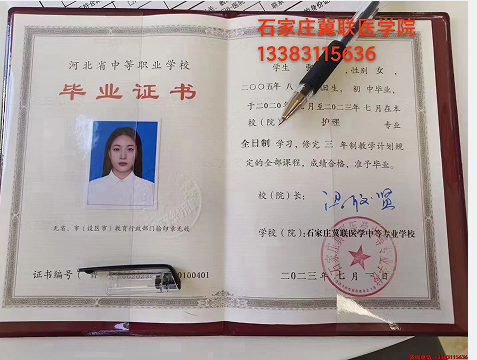 石家庄冀联医学院
13383115636
河北省中等职业学校
毕业证书
无省、市（设区市）教育行政部门验印章无效
证书编号
0100401
学生
性别 女，
二〇〇五年 八
生，初中毕业，
于二〇二〇年
月至二〇二三年 七月在本
校（院）
护理
专业
全日制 学习，修完 三 年制教学计划规
定的全部课程，成绩合格，准予毕业。
校（院）长：
学校（院）：石家庄冀联医学中等专业学校
二〇二三年 七 月 一 日